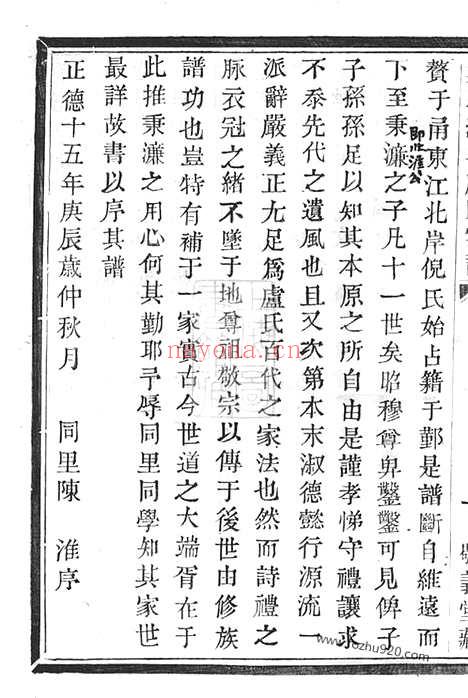 贅于甬東江北岸倪氏始占籍于鄞是譜斷自維遠而
下至秉濂之子凡十一世矣昭穆尊卑鑿鑿可見俾子
即淮公
子孫孫足以知其本原之所自由是謹孝悌守禮讓求
不忝先代之遺風也且又次第本末淑德懿行源流一
派辭嚴義正尤足爲盧氏百代之家法也然而詩禮之
脉衣冠之緒不墜于地尊祖敬宗以傳于後世由修族
譜功也豈特有補于一家實古今世道之大端胥在于
此推秉濂之用心何其勤耶予辱同里同學知其家世
最詳故書以序其譜
正德十五年庚辰歲仲秋月 同里陳 淮序
mayona.cn
www.ozhu920.com